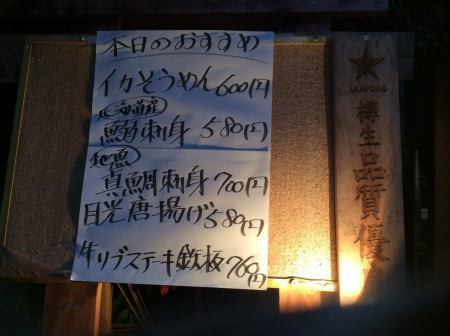 本日のおすすめ
イカそうめん 600円
北海道産
鰯刺身 580円
地魚
真鯛刺身 700円
目光唐揚げ 580円
牛リブステーキ鉄板 760円
SAPPORO
樽生品質優